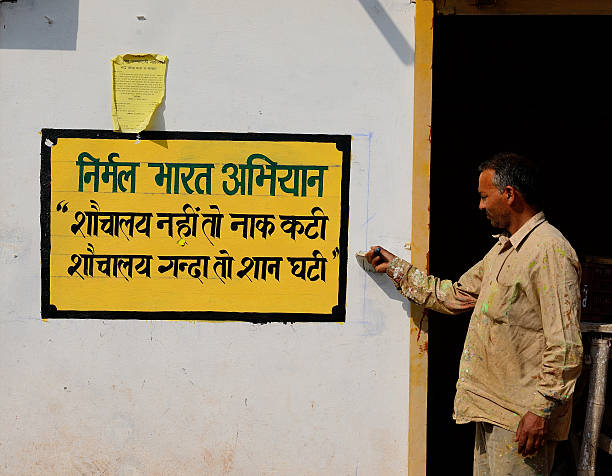 निर्मल भारत अभियान
“शौचालय नहीं तो नाक कटी
शौचालय गन्दा तो शान घटी”